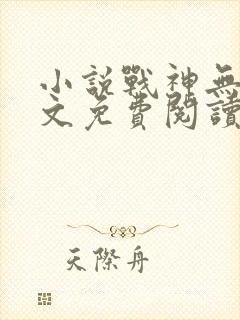 小說戰神無
文免費閱讀
天際舟